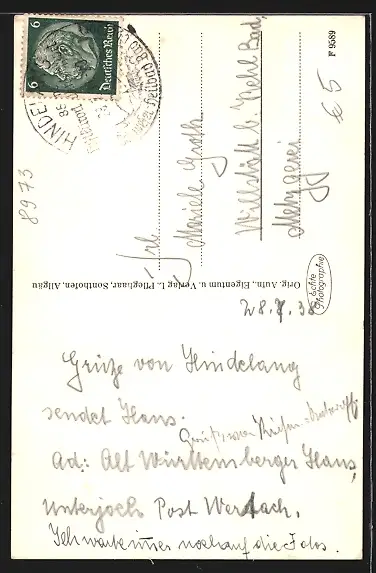 6 Deutsches Reich 6
HINDEL
F 9589
€ 5
8973
Frl.
Mariele Groth
Willstätt b. Kehl Bad.
Metzgerei
Orig. Aufn., Eigentum u. Verlag L. Pfleghaar, Sonthofen, Allgäu
Echte Photographie
28.7.38
Grüße von Hindelang
sendet Hans.
Ad: Alt Württemberger Haus,
Unterjoch Post Wertach.
Ich warte immer noch auf die Fotos.